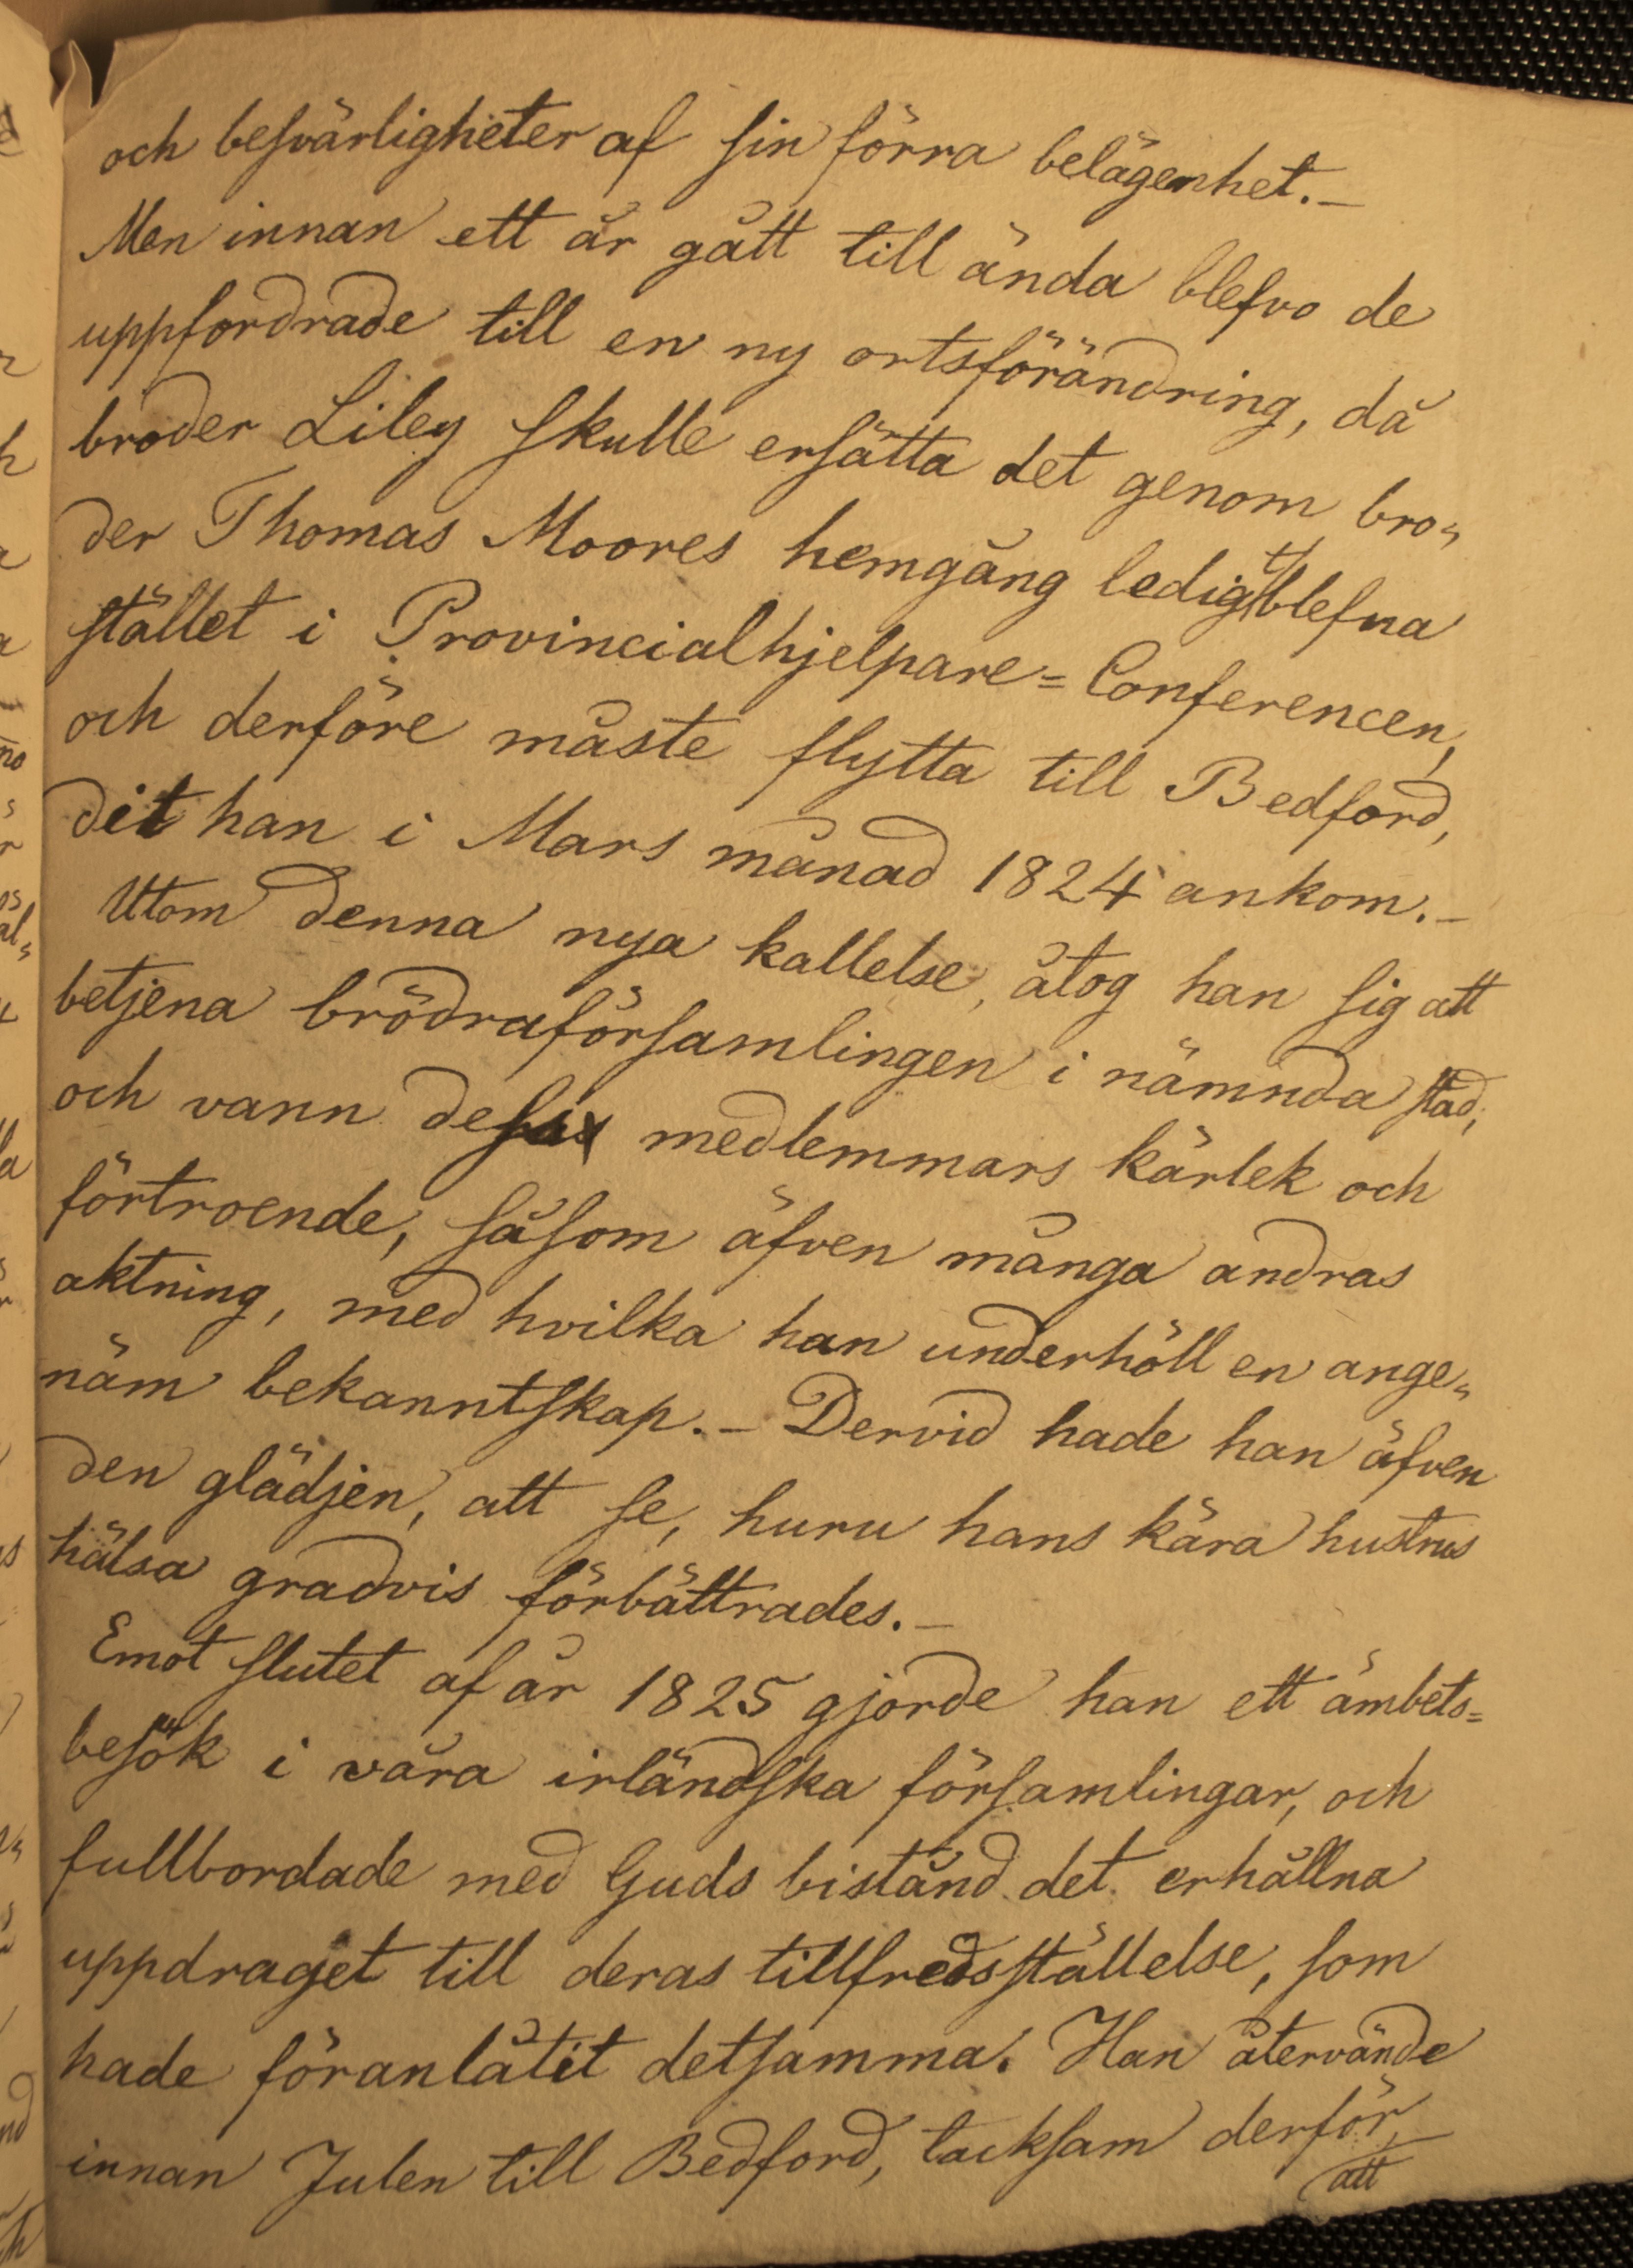 och besvärligheter af sin förra belägenhet. –
Men innan ett år gått till ända blefvo de
uppfordrade till en ny ortsförändring, då
broder Liley skulle ersätta det genom bro„
der Thomas Moores hemgång ledigt blefna
stället i Provincialhjelpare=Conferencen,
och derföre måste flytta till Bedford,
dit han i Mars månad 1824 ankom. –
Utom denna nya kallelse, åtog han sig att
betjena brödraförsamlingen i nämnda stad,
och vann dess medlemmars kärlek och
förtroende, såsom äfven många andras
aktning, med hvilka han underhöll en ange„
näm bekanntskap. – Dervid hade han äfven
den glädjen, att se, huru hans kära hustrus
hälsa gradvis förbättrades. –
Emot slutet af år 1825 gjorde han ett ämbets=
besök i våra irländska församlingar, och
fullbordade med Guds bistånd det erhållna
uppdraget till deras tillfredsställelse, som
hade föranlåtit detsamma. Han återvände
innan Julen till Bedford, tacksam derför,
att